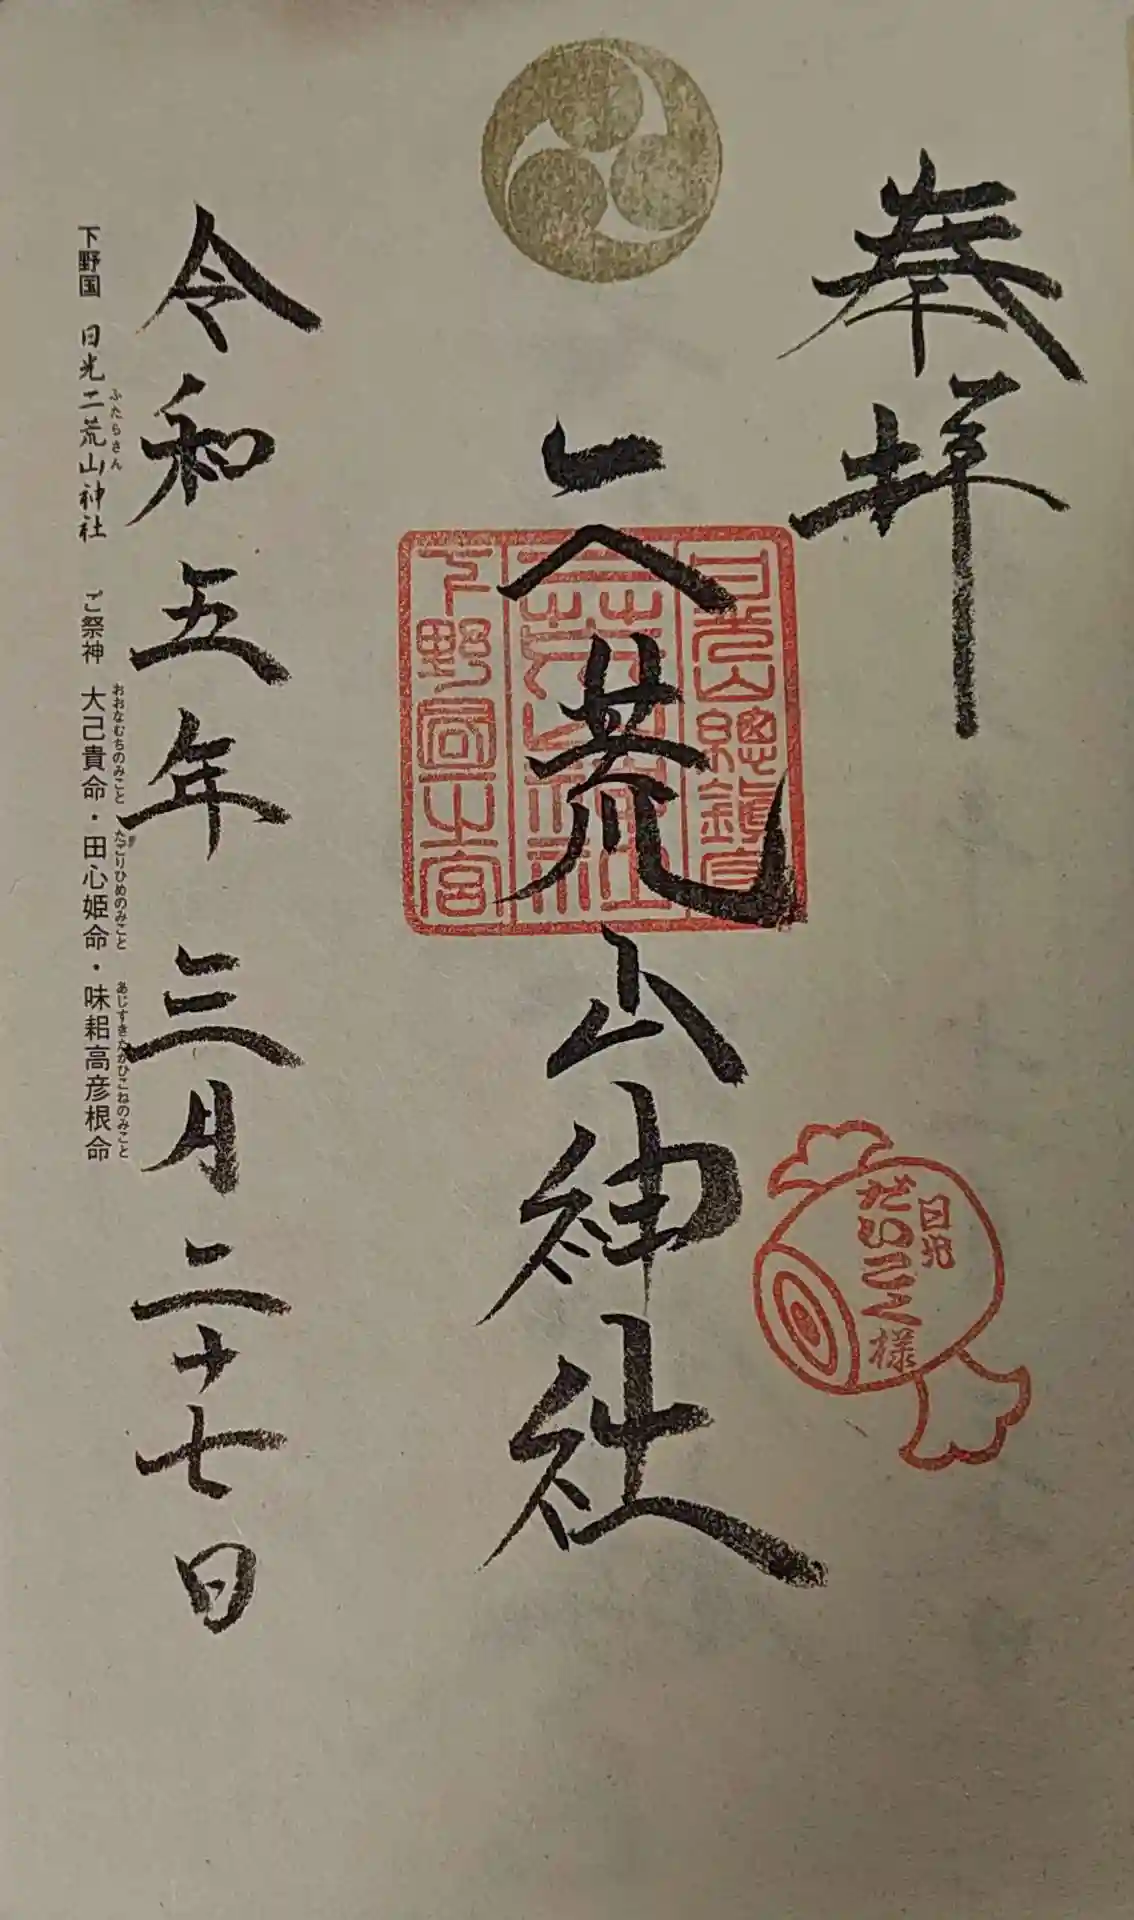 奉拝
日光
だいこく様
二荒山神社
日光山總鎮守
二荒山神社
下野國一之宮
令和五年三月二十七日
下野国 日光二荒山神社 ご祭神 大己貴命・田心姫命・味耜高彦根命
ふたらさん おおなむちのみこと たごりひめのみこと あじすきたかひこねのみこと